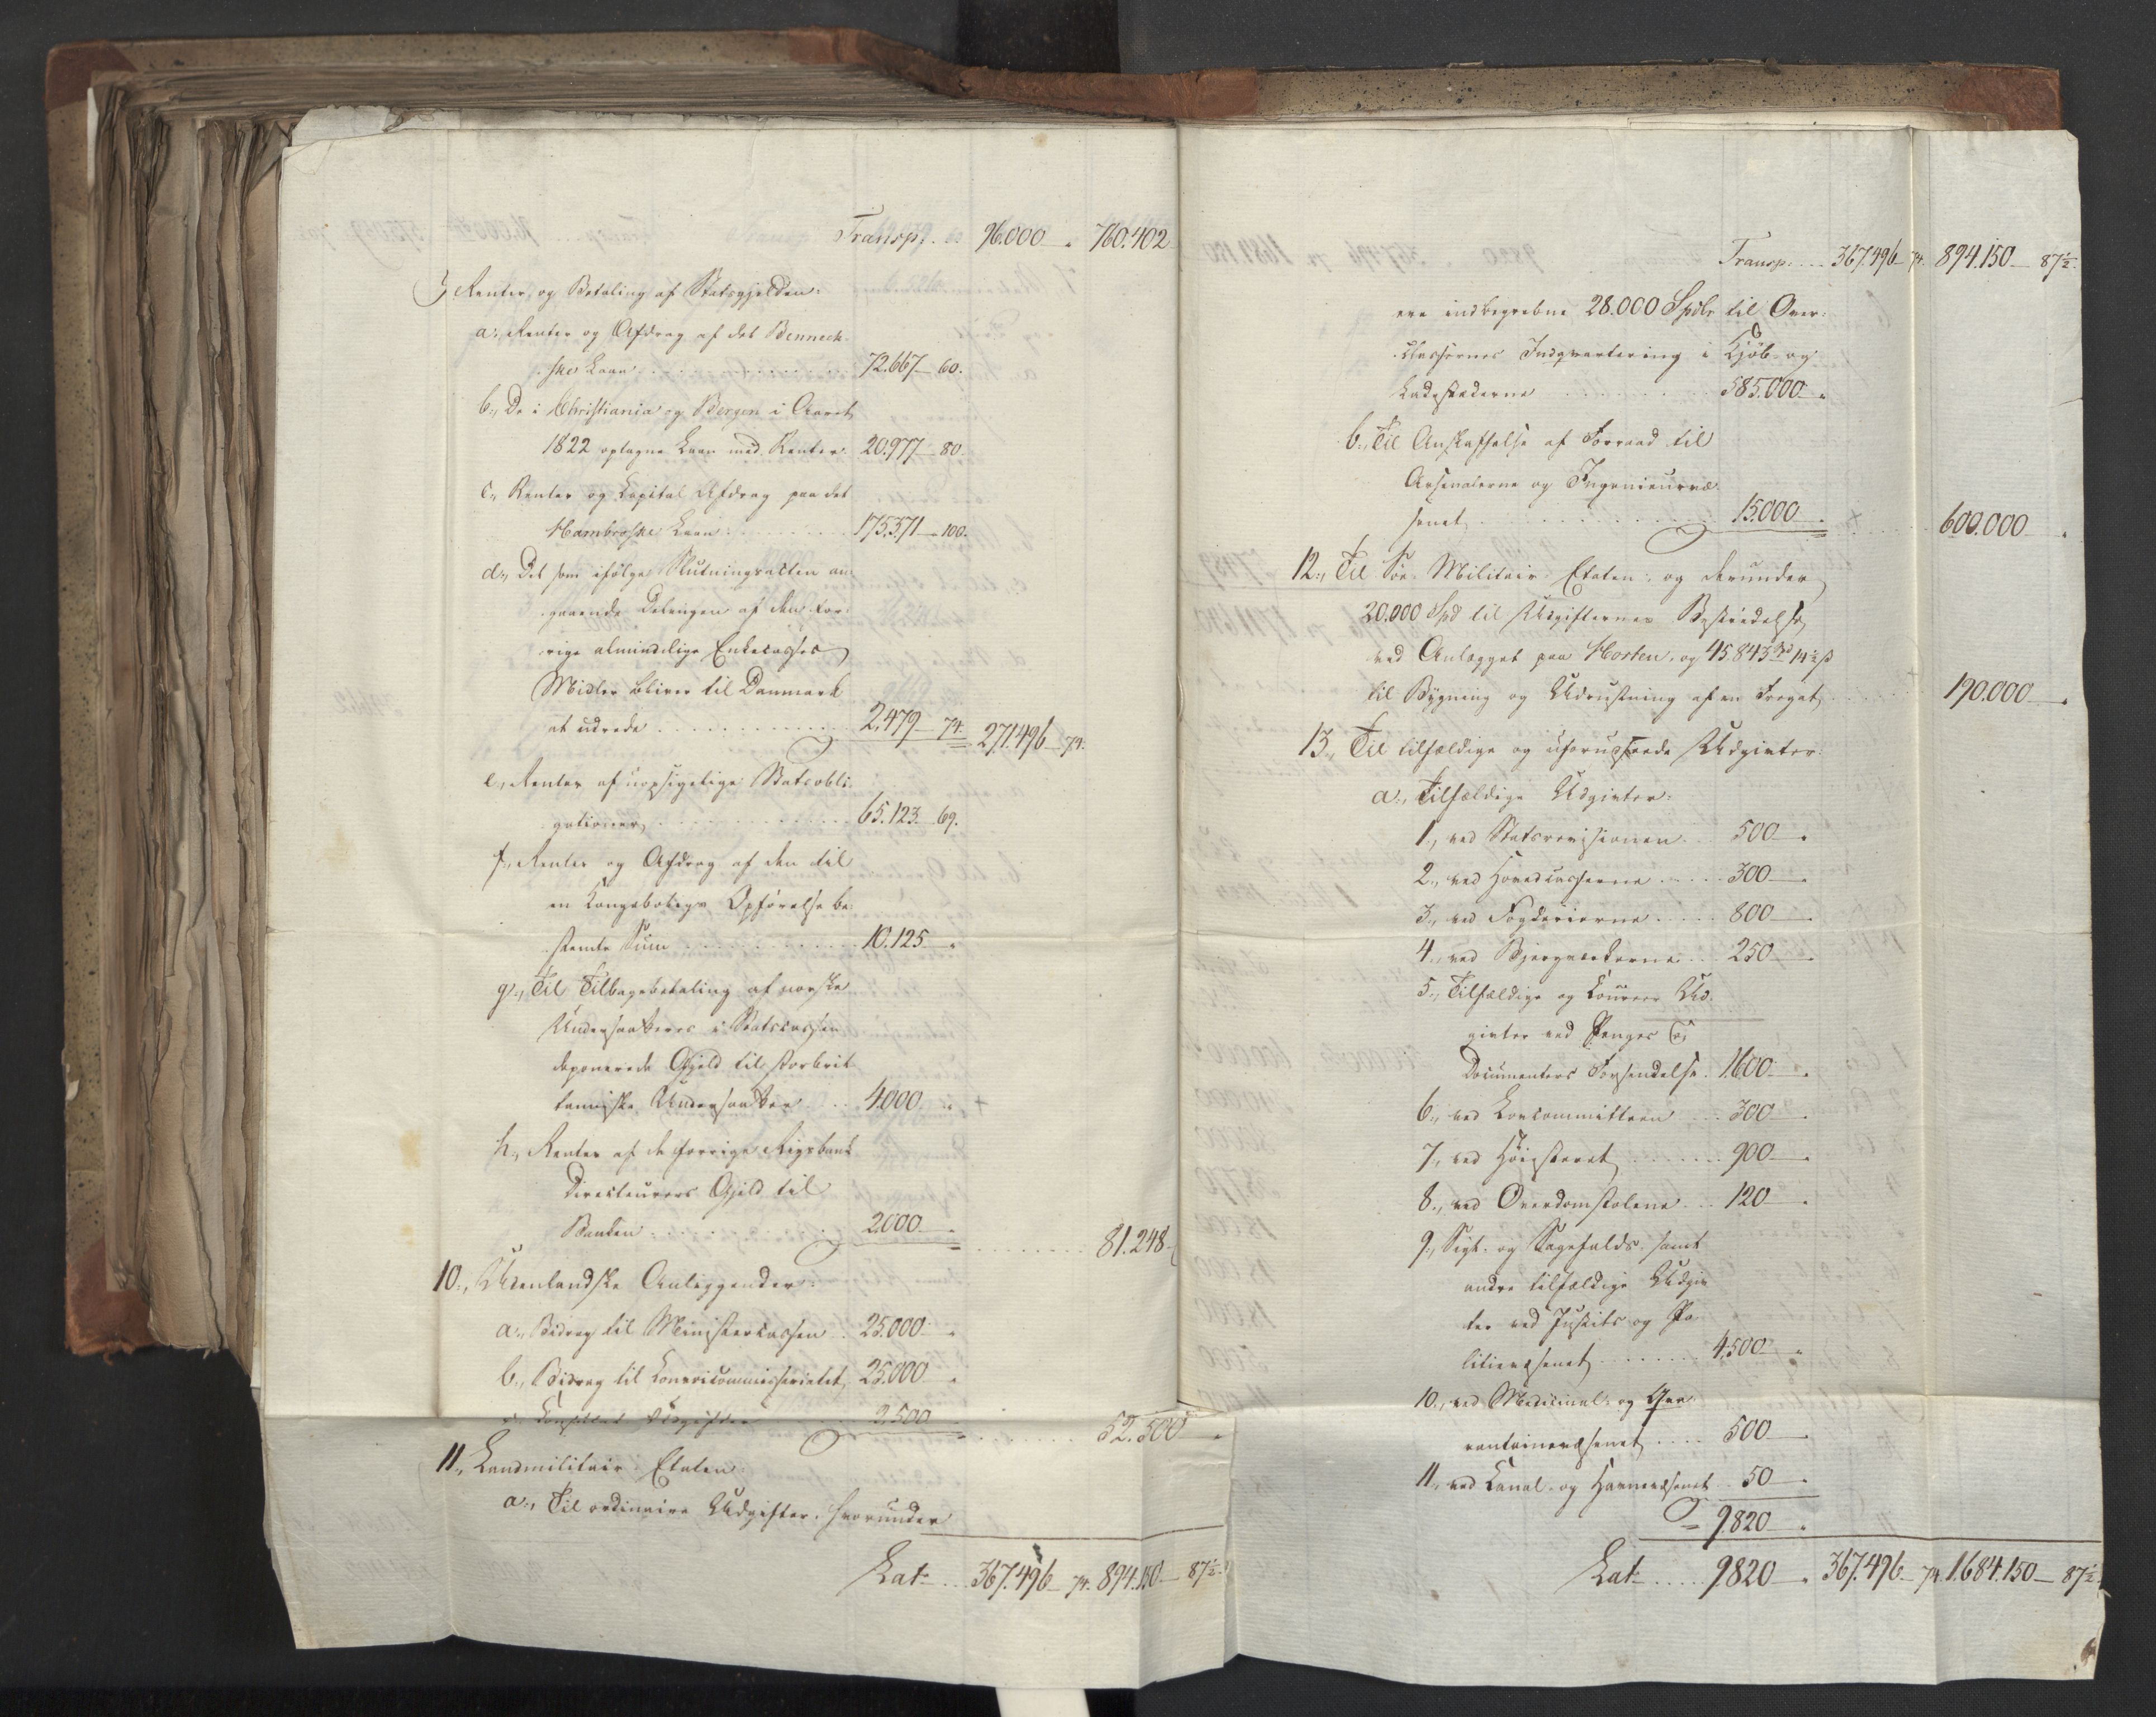 Transp. 96.000 - 760.402
Renter, og Betaling af Statsgjelden:
a., Renter og Afdrag af det Benneck-
ske Laan 72.667 - 60.
b., De i Christiania og Bergen i Aaret
1822 optagne Laan med Renter. 20.977 - 80.
c., Renter og Capital Afdrag paa det
Hambroske Laan 175.371 - 100.
d., Det som ifølge Slutningsacten an-
gaaende Delingen af den for-
rige almindelige Enkecasses
Midler bliver til Danmark
at udrede 2,479 - 74. 271.496 - 74.
e., Renter af uopsigelige Statsobli-
gationer 65.123 - 69.
f., Renter og Afdrag af den til
en Kongeboligs Opførelse be-
stemte Sum 10.125 -
g., Til Tilbagebetaling af norske
Undersaatters i Statscassen
deponerede Gjeld til storbrit-
tanniske Undersaatter 4.000 -
h., Renter af de forrige Rigsbank
Directeurers Gjeld til
Banken 2000 - 81.248 -
10., Udenlandske Anliggender:
a., Bidrag til Ministercassen 25.000 -
b., Bidrag til Convoicommissariatet, 25.000 -
c. Consulat Udgifter 2.500 - 52.500 -
11., Landmilitair-Etaten:
a., Til ordinaire Udgifter, hvorunder
Lat. 367.496 - 74. 894.150 - 87½
Transp. 367.496 - 74. 894.150 - 87½
ere indbegrebne 28.000 Spdlr til Over-
Classernes Indqvartering i Kjøb- og
Ladestæderne 585.000 -
b., Til Anskaffelse af Forraad til
Arsenalerne og Ingenieurvæ-
senet 15.000 - 600.000 -
12., Til Søe-Militair-Etaten, og derunder
20.000 Spd til Udgifternes Bestridelse
ved Anlægget paa Horten, og 45.843 Spd 14½ ß
til Bygning og Udrustning af en Fregat 190.000 -
13., Til tilfældige og uforudseede Udgivter:
a., Tilfældige Udgivter:
1., ved Statsrevisionen 500 -
2., ved Hovedcasserne 300 -
3., ved Fogderierne 800 -
4., ved Bjergværkerne 250 -
5., Tilfældige og Coureer Ud-
givter ved Penges &
Documenters Forsendelse 1.600 -
6., ved Lovcommitteen 300 -
7., ved Høiesteret 900 -
8., ved Overdomstolene 120 -
9., Sigt- og Sagefalds- samt
andre tilfældige Udgiv-
ter ved Justits og Po-
litievæsenet 4.500 -
10., ved Medicinal- og Qva-
rantainevæsenet 500 -
11., ved Canal- og Havnevæsenet 50 -
= 9.820 -
Lat. 9820 - 367.496 - 74. 1.684.150 - 87½